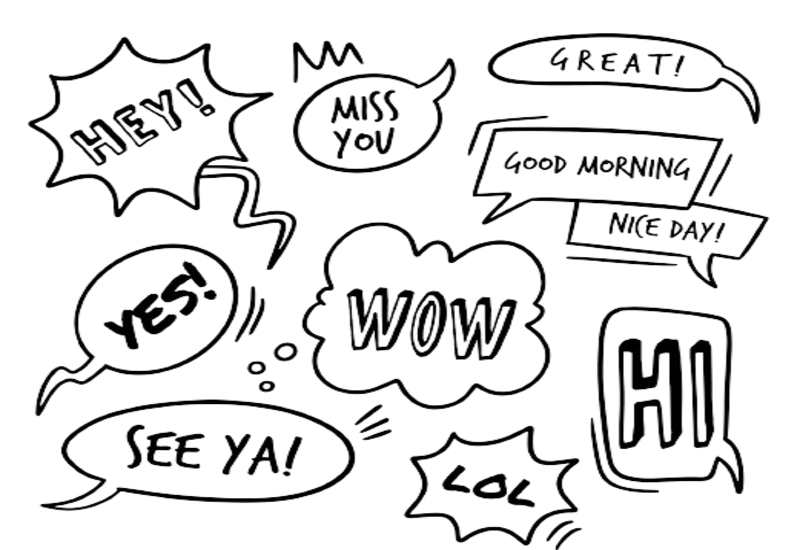 HEY!
MISS
YOU
GREAT!
GOOD MORNING
NICE DAY!
YES!
WOW
HI
SEE YA!
LOL